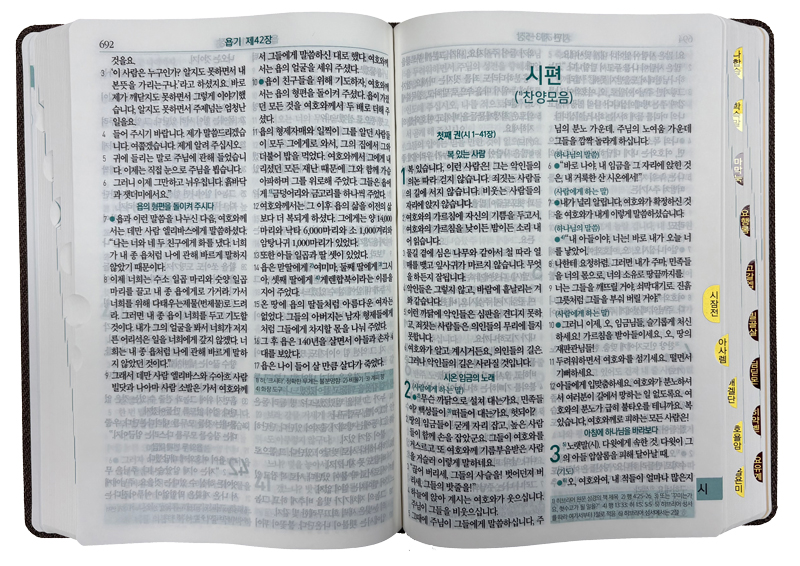 692
욥기 제42장
것을요.
3 '이 사람은 누구인가? 알지도 못하면서 내
본뜻을 가리는구나.'라고 하셨지요. 바로
제가 깨닫지도 못하면서 그렇게 이야기했
습니다. 알지도 못하면서 주제넘는 엄청난
일을요.
4 들어 주시기 바랍니다. 제가 말씀드리겠습
니다. 여쭙겠습니다. 제게 알려 주십시오.
5 귀에 들리는 말로 주님에 관해 들었습니
다. 이제는 직접 눈으로 주님을 뵙습니다.
6 그러니 이제 그만하고 뉘우칩니다. 흙바닥
과 잿더미에서요."
욥의 형편을 돌이켜 주시다
7 욥과 이런 말씀을 나누신 다음, 여호와께
서는 데만 사람 엘리바스에게 말씀하셨다.
"나는 너와 네 두 친구에게 화를 냈다. 너희
가 내 종 욥처럼 나에 관해 바르게 말하지
않았기 때문이다.
8 이제 너희는 수소 일곱 마리와 숫양 일곱
마리를 끌고 내 종 욥에게로 가거라. 가서
너희를 위해 다 태우는 제물(번제물)로 드려
라. 그러면 내 종 욥이 너희를 두고 기도할
것이다. 내가 그의 얼굴을 봐서 너희가 저지
른 어리석은 일을 너희에게 갚지 않겠다. 너희
는 내 종 욥처럼 나에 관해 바르게 말하
지 않았던 것이다."
9 그래서 데만 사람 엘리바스와 수아흐 사람
빌닷과 나아마 사람 소발은 가서 여호와께
서 그들에게 말씀하신 대로 했다. 여호와께
서는 욥의 얼굴을 세워 주셨다.
10 욥이 친구들을 위해 기도하자, 여호와께
서는 욥의 형편을 돌이켜 주셨다. 욥이 가졌
던 모든 것을 여호와께서 두 배로 더해 주
셨다.
11 욥의 형제자매와 일찍이 그를 알던 사람들
이 모두 그에게로 와서, 그의 집에서 그와
더불어 밥을 먹었다. 여호와께서 그에게 내
리셨던 모든 재난 때문에 그와 함께 가슴
아파하며 그를 위로해 주었다. 그들은 욥에
게 금덩어리와 금고리를 하나씩 주었다.
12 여호와께서는 그 이후 욥의 삶을 이전의 삶
보다 더 복되게 하셨다. 그에게는 양 14,000
마리와 낙타 6,000마리와 소 1,000겨리와
암탕나귀 1,000마리가 있었다.
13 또한 아들 일곱과 딸 셋이 있었다.
14 욥은 맏딸에게 '여미마', 둘째 딸에게 '그시
아', 셋째 딸에게 '게렌합부이'라는 이름을
지어 주었다.
15 온 땅에 욥의 딸들처럼 아름다운 여자는
없었다. 그들의 아버지는 남자 형제들에게
처럼 그들에게 차지할 몫을 나눠 주었다.
16 그 후 욥은 140년을 살면서 아들과 손자
대를 보았다.
17 욥은 나이 들어 살 만큼 살다가 죽었다.
시편
(찬양모음)
첫째 권(시 1~41장)
복 있는 사람
1 복 있습니다, 이런 사람은! 그는 악인들의
의논 따라 걷지 않습니다. 죄짓는 사람들
의 길에 서지 않습니다. 비웃는 사람들의
자리에 앉지 않습니다.
2 여호와의 가르침에 자신의 기쁨을 두고서,
여호와의 가르침을 낮이든 밤이든 소리 내
어 읽습니다.
3 물길 곁에 심은 나무와 같아서 철 따라 열
매를 맺고 잎사귀가 마르지 않습니다. 무엇
을 하든지 잘됩니다.
4 악인들은 그렇지 않고, 바람에 흩날리는 겨
와 같습니다.
5 이런 까닭에 악인들은 심판을 견디지 못하
고, 죄짓는 사람들은 의인들의 무리에 들지
못합니다.
6 여호와가 알고 계시거든요, 의인들의 길은.
그러나 악인들의 길은 사라질 것입니다.
시온 임금의 노래
(사람에게 하는 말)
2 무슨 까닭으로 설쳐 대는가요, 민족들
이? 백성들이 떠들어 대는가요, 헛되이?
2 땅의 임금들이 굳게 자리 잡고, 높은 사람
들이 함께 손을 잡았군요. 그들이 여호와를
거스르고 또 여호와께 기름부음받은 사람
을 거슬러 이렇게 말하네요.
3 "끊어 버리세, 그들의 사슬을! 벗어던져 버
리세, 그들의 밧줄을!"
4 하늘에 앉아 계시는 여호와가 웃으십니다.
주님이 그들을 비웃으십니다.
5 그때에 주님이 그들에게 말씀하십니다, 주
님의 분노 가운데. 주님의 노여움 가운데
그들을 깜짝 놀라게 하십니다.
(하나님의 말씀)
6 "바로 나야, 내 임금을 그 자리에 앉힌 것
은, 내 거룩한 산 시온에서!"
(사람에게 하는 말)
7 내가 널리 알립니다, 여호와가 확정하신 것
을. 여호와가 내게 이렇게 말씀하셨습니다.
(하나님의 말씀)
"내 아들이야, 너는! 바로 내가 오늘 너
를 낳았어!
8 나한테 요청하렴. 그러면 내가 주마, 민족들
을 너의 몫으로, 너의 소유로 땅끝까지를!
9 너는 그들을 깨뜨릴 거야, 쇠막대기로. 진흙
그릇처럼 그들을 부숴 버릴 거야!"
(사람에게 하는 말)
10 그러니 이제, 오, 임금님들, 슬기롭게 처신
하세요! 가르침을 받아들이세요, 오, 땅의
재판관님들!
11 두려워하면서 여호와를 섬기세요. 떨면서
기뻐하세요.
12 아들에게 입맞춤하세요. 여호와가 분노하셔
서 여러분이 길에서 망하는 일 없도록요. 여
호와의 분노가 금히 불타오를 테니까요. 복
있습니다, 여호와께로 피하는 모든 사람은!
아침에 하나님을 바라보다
3 노랫말(시). 다윗에게 속한 것. 다윗이 그
의 아들 압살롬을 피해 달아날 때.
(기도)
오, 여호와여, 내 적들이 얼마나 많은지
시
시잠전
아사렘
겔단
호욜암